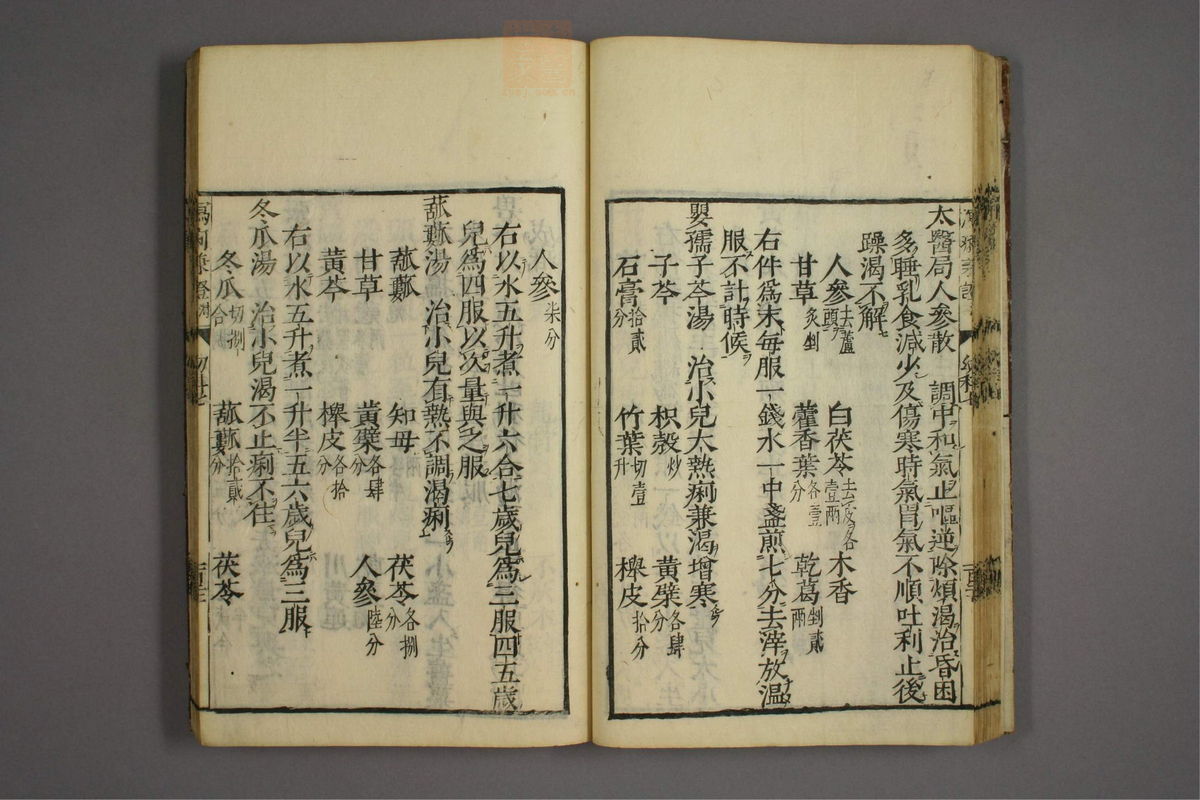 太醫局人參散 調中和氣止嘔逆除煩渴治昏困
多睡乳食減少及傷寒時氣胃氣不順吐利止後
躁渴不解
人參去蘆頭 白茯苓去皮各壹兩 木香
甘草炙剉 藿香葉各壹分 乾葛剉貳兩
右件爲末每服一錢水一中盞煎七分去滓放溫
服不計時候
嬰孺子芩湯 治小兒大熱痢兼渴增寒
子芩 枳殼炒 黃蘗各肆分
石膏拾貳分 竹葉切壹升 樗皮拾分
人參柒分
右以水五升煮一升六合七歲兒爲三服四五歲
兒爲四服以次量與之服
菰䕡湯 治小兒有熱不調渴痢
甘草 知母 茯苓各捌分
黃芩 黃蘗各肆分 人參陸分
樗皮各拾分
右以水五升煮一升半五六歲兒爲三服
冬瓜湯 治小兒渴不止痢不住
冬瓜切捌合 拾貳分 茯苓